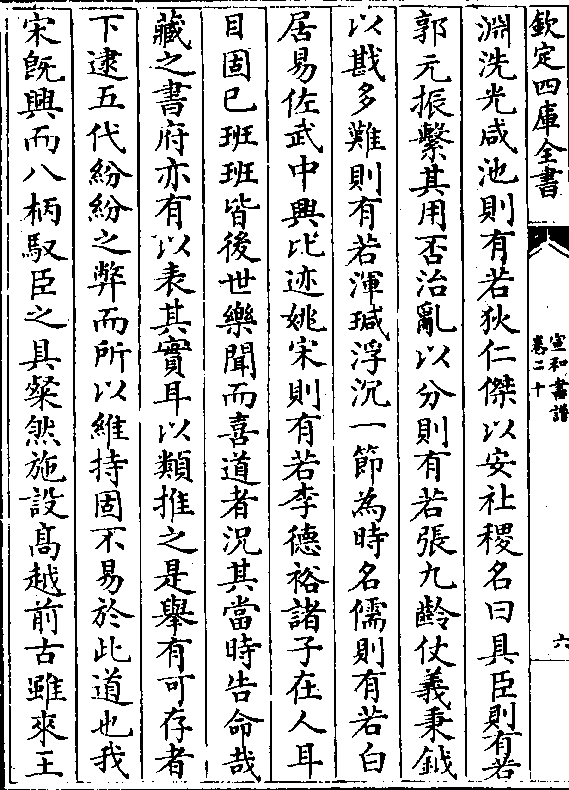 欽定四庫全書
宣和書譜
卷二十
六
淵洗光咸池則有若狄仁傑以安社稷名曰具臣則有若
郭元振繫其用否治亂以分則有若張九齡仗義秉鉞
以戡多難則有若渾瑊浮沉一節為時名儒則有若白
居易佐武中興比迹姚宋則有若李德裕諸子在人耳
目固已班班皆後世樂聞而喜道者況其當時告命哉
藏之書府亦有以表其實耳以類推之是舉有可存者
下逮五代紛紛之弊而所以維持固不易於此道也我
宋既興而八柄馭臣之具粲然施設髙越前古雖來王